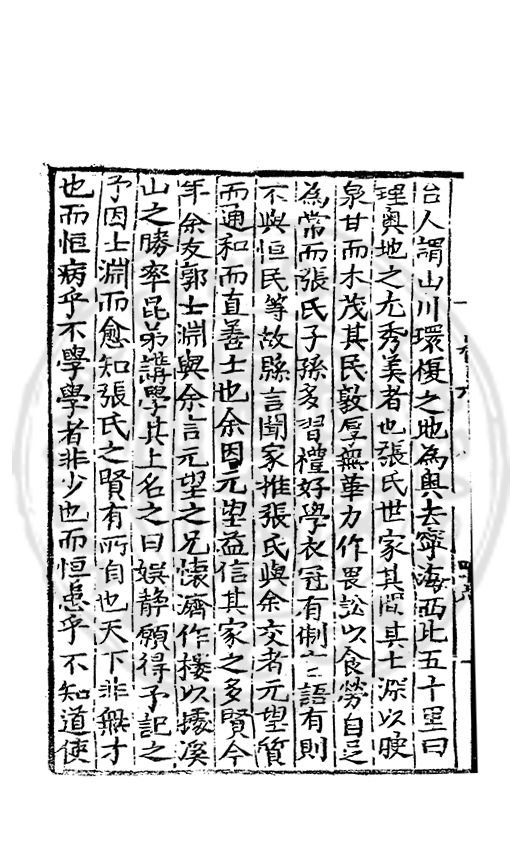 台人謂山川環復之地為奧去寧海西北五十里曰
理奧地之尤秀美者也張氏世家其間其土深以腴
泉甘而木茂其民敦厚無華力作畏訟以食勞自足
為常而張氏子孫多習禮好學衣冠有制言語有則
不與恒民等故縣言聞家推張氏與余交者元望質
而通和而直善士也余因元望益信其家之多賢今
年余友郭士淵與余言元望之兄懷濟作樓以據溪
山之勝率昆弟講學其上名之曰娛静願得予記之
予因士淵而愈知張氏之賢有所自也天下非無才
也而恒病乎不學學者非少也而恒患乎不知道使